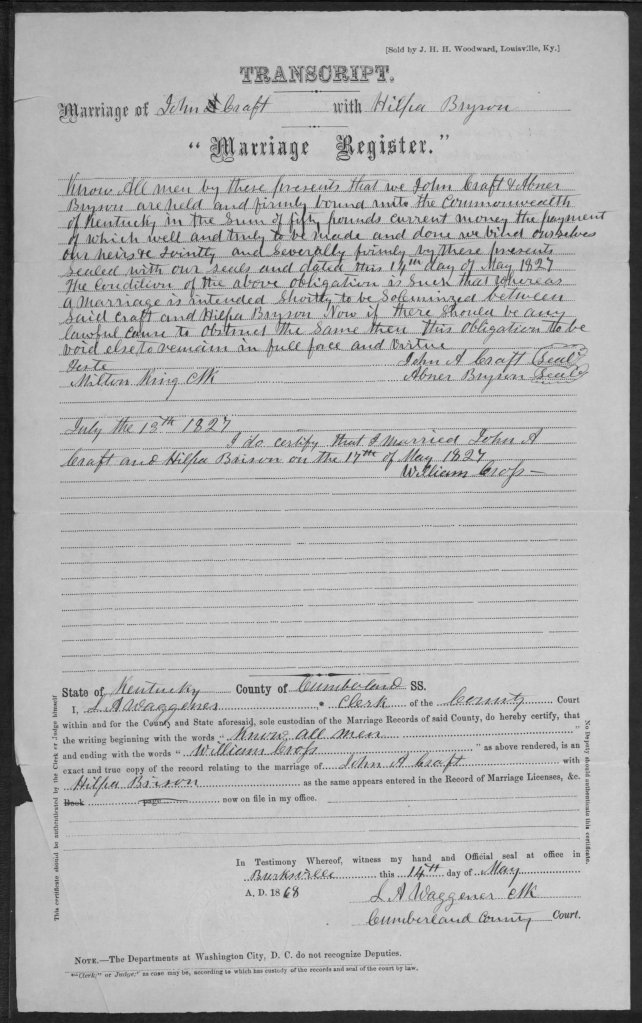 [Sold by J. H. H. Woodward, Louisville, Ky.]
TRANSCRIPT.
Marriage of John A Craft with Hilpa Bryson
"Marriage Register."
Know All men by these presents that we John Craft & Abner
Bryson are held and firmly bound unto the Commonwealth
of Kentucky in the sum of fifty pounds current money the payment
of which well and truly to be made and done we bind ourselves
our heirs &c Jointly and Severally firmly by these presents
Sealed with our seals and dated this 14th day of May 1827
The Condition of the above obligation is Such that whereas
a Marriage is intended Shortly to be Solemnized between
Said Craft and Hilpa Bryson Now if there Should be any
lawful cause to obstruct the Same then this obligation to be
void else to remain in full force and virtue
Teste John A Craft (Seal)
Milton King Clk Abner Bryson (Seal)
July the 13th 1827
I do certify that I married John A
Craft and Hilpa Brison on the 17th of May 1827
William Cross
State of Kentucky County of Cumberland SS.
I, L A Waggener * Clerk of the County Court
within and for the County and State aforesaid, sole custodian of the Marriage Records of said County, do hereby certify, that
the writing beginning with the words "Know all men"
and ending with the words "William Cross" as above rendered, is an
exact and true copy of the record relating to the marriage of John A Craft with
Hilpa Brison as the same appears entered in the Record of Marriage Licenses, &c.
Book page now on file in my office.
In Testimony Whereof, witness my hand and Official seal at office in
Burksville this 14th day of May
A. D. 1868 L A Waggener Clk
Cumberland County Court.
NOTE.—The Departments at Washington City, D. C. do not recognize Deputies.
*"Clerk," or Judge," as case may be, according to which has custody of the records and seal of the court by law.
This certificate should be authenticated by the Clerk or Judge himself
No Deputy should authenticate this certificate.